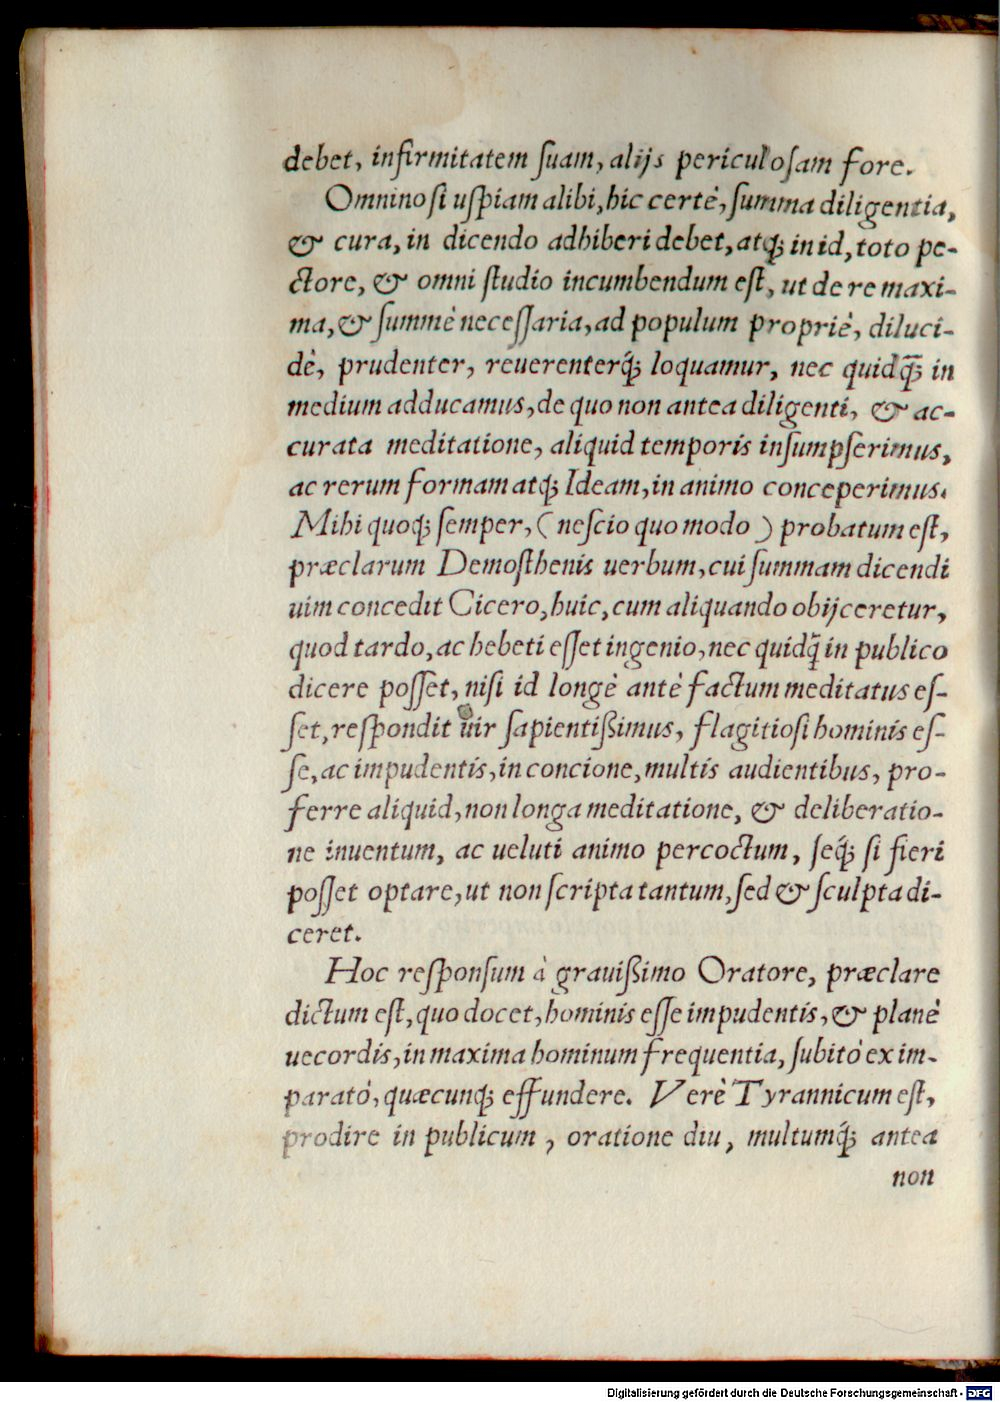 debet, infirmitatem ſuam, alijs periculoſam fore.
Omnino ſi uſpiam alibi, hic certè, ſumma diligentia,
& cura, in dicendo adhiberi debet, atq́; in id, toto pe-
ctore, & omni ſtudio incumbendum eſt, ut de re maxi-
ma, & ſummè neceſſaria, ad populum propriè, diluci-
dè, prudenter, reuerenterq́; loquamur, nec quidq̃; in
medium adducamus, de quo non antea diligenti, & ac-
curata meditatione, aliquid temporis inſumpſerimus,
ac rerum formam atq́; Ideam, in animo conceperimus.
Mihi quoq́; ſemper, (neſcio quo modo) probatum eſt,
præclarum Demoſthenis uerbum, cui ſummam dicendi
uim concedit Cicero, huic, cum aliquando obijceretur,
quod tardo, ac hebeti eſſet ingenio, nec quidq̃ in publico
dicere poſſet, niſi id longè antè factum meditatus eſ-
ſet, reſpondit uir ſapientißimus, flagitioſi hominis eſ-
ſe, ac impudentis, in concione, multis audientibus, pro-
ferre aliquid, non longa meditatione, & deliberatio-
ne inuentum, ac ueluti animo percoctum, ſeq́; ſi fieri
poſſet optare, ut non ſcripta tantum, ſed & ſculpta di-
ceret.
Hoc reſponſum à grauißimo Oratore, præclare
dictum eſt, quo docet, hominis eſſe impudentis, & planè
uecordis, in maxima hominum frequentia, ſubitò ex im-
paratò, quæcunq́; effundere. Verè Tyrannicum eſt,
prodire in publicum, oratione diu, multumq́; antea
non
Digitalisierung gefördert durch die Deutsche Forschungsgemeinschaft - DFG